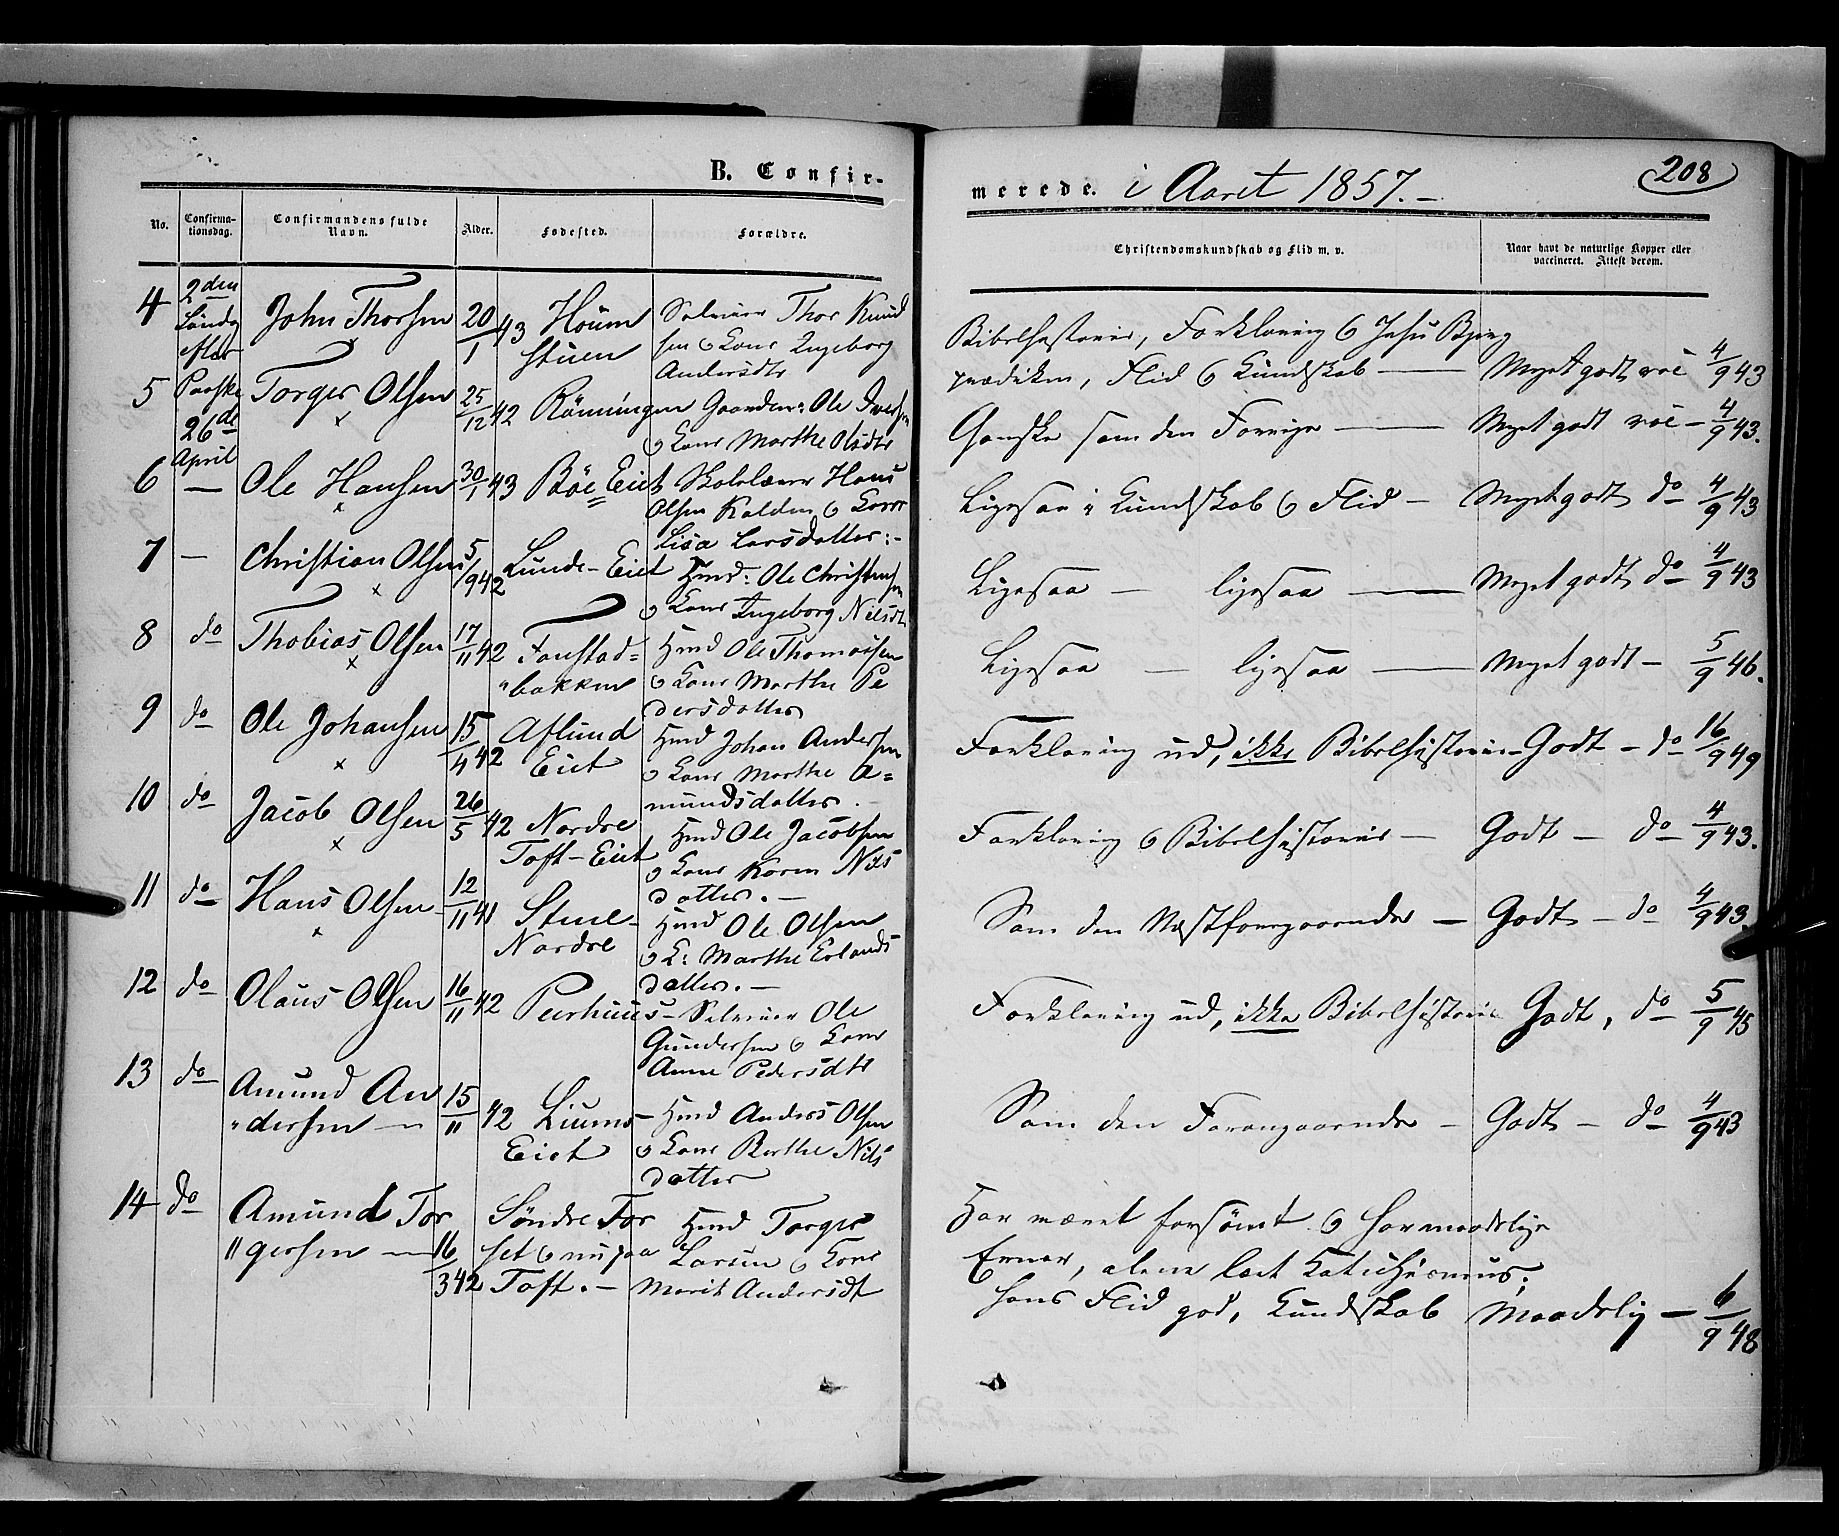 B. Confir-
merede. i Aaret 1857.-
208
No.
Confirma-
tionsdag.
Confirmandens fulde
Navn.
Alder.
Fødested.
Forældre.
Christendomskundskab og Flid m. v.
Naar havt de naturlige Kopper eller
vaccineret. Attest derom.
4 2den Søndg efter John Thorsen 20/1 43 Houm
stuen
Selveier Thor Knud
sen & Kone Ingeborg
Andersdtr
Bibelhistorie, Forklaring & Jesu Bjerg
prædiken, Flid & Kundskab — Meget godt vac 4/9 43
5 Paaske 26de April Torger Olsen 25/12 42 Rönningen Gaardm: Ole Iversen
& Kone Marthe Olsdtr
Ganske som den Forrige — Meget godt vac - 4/9 43.
6 — Ole Hansen 30/1 43 Böe Eiet Skolelærer Hans
Olsen Kalden & Kone
Lisa Larsdatter:-
Ligesaa i Kundskab & Flid — Meget godt do 4/9 43
7 — Christian Olsen 5/9 42 Lunde-Eiet Hmd: Ole Christensen
& Kone Ingeborg Nilsdt
Ligesaa — ligesaa — Meget godt do 4/9 43
8 do Thobias Olsen 17/11 42 Fonstad=
"bakken
Hmd Ole Thomassen
& Kone Marthe Pe
dersdatter
Ligesaa — ligesaa — Meget godt - 5/9 46.
9 do Ole Johansen 15/4 42 Aflund
Eiet
Hmd Johan Andersen
& Kone Marthe A=
mundsdatter.
Forklaring ud, ikke Bibelhistorie - Godt - do 16/9 49
10 do Jacob Olsen 26/5 42 Nordre
Toft-Eiet
Hmd Ole Jacobsen
& Kone Karen Nils
datter.-
Forklaring & Bibelhistorie — Godt — do 4/9 43.
11 do Hans Olsen 12/11 41 Stene-
Nordre
Hmd Ole Olsen
& K: Marthe Erlands
datter.-
Som den Næstforegaaende — Godt - do 4/9 43.
12 do Olaus Olsen 16/11 42 Peerhuus - Selveier Ole
Gundersen & Kone
Anne Pedersdtr
Forklaring ud, ikke Bibelhistorie Godt, do 5/9 45
13 do Amund An
"dersen — 15/11 42 Liums
Eiet
Hmd Anders Olsen
& Kone Berthe Nils
datter
Som den Foregaaende — Godt - do 4/9 43
14 do Amund Tor
"gersen — 16/3 42 Söndre For
set & nu paa
Toft.-
Hmd Torger
Larsen & Kone
Marit Andersdt
Har været forsömt & har maadelige
Evner, alene læst Katechismus;
hans Flid god, Kundskab Maadelig — 6/9 48